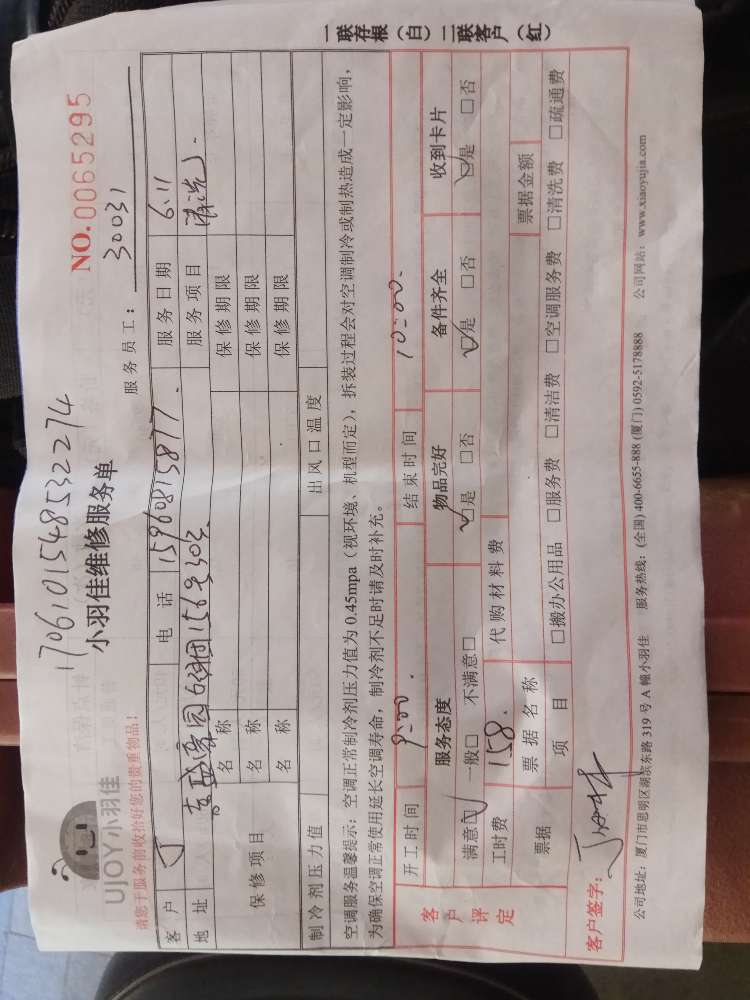 170610154853227４
UJOY小羽佳
小羽佳维修服务单
NO.0065295
请您于服务前收拾好您的贵重物品！
服务员工： 30031
客户 丁 电话 15960815877. 服务日期 6.11
地址 156号302 服务项目 清洗
保修项目 名称 保修期限
名称 保修期限
名称 保修期限
制冷剂压力值 出风口温度
空调服务温馨提示：空调正常制冷剂压力值为 0.45mpa（视环境、机型而定），拆装过程会对空调制冷或制热造成一定影响，
为确保空调正常使用延长空调寿命，制冷剂不足时请及时补充。
客户评定
开工时间 9:00. 结束时间 10:00.
服务态度 物品完好 备件齐全 收到卡片
满意☑ 一般□ 不满意□ ☑是 □否 ☑是 □否 ☑是 □否
工时费 158. 代购材料费
票据 票据名称 票据金额
项目 □搬办公用品 □服务费 □清洁费 □空调服务费 □清洗费 □疏通费
客户签字：
公司地址：厦门市思明区湖滨东路 319 号 A 幢小羽佳 服务热线：(全国) 400-6655-888 (厦门) 0592-5178888 公司网站：www.xiaoyujia.com
一联存根（白）二联客户（红）